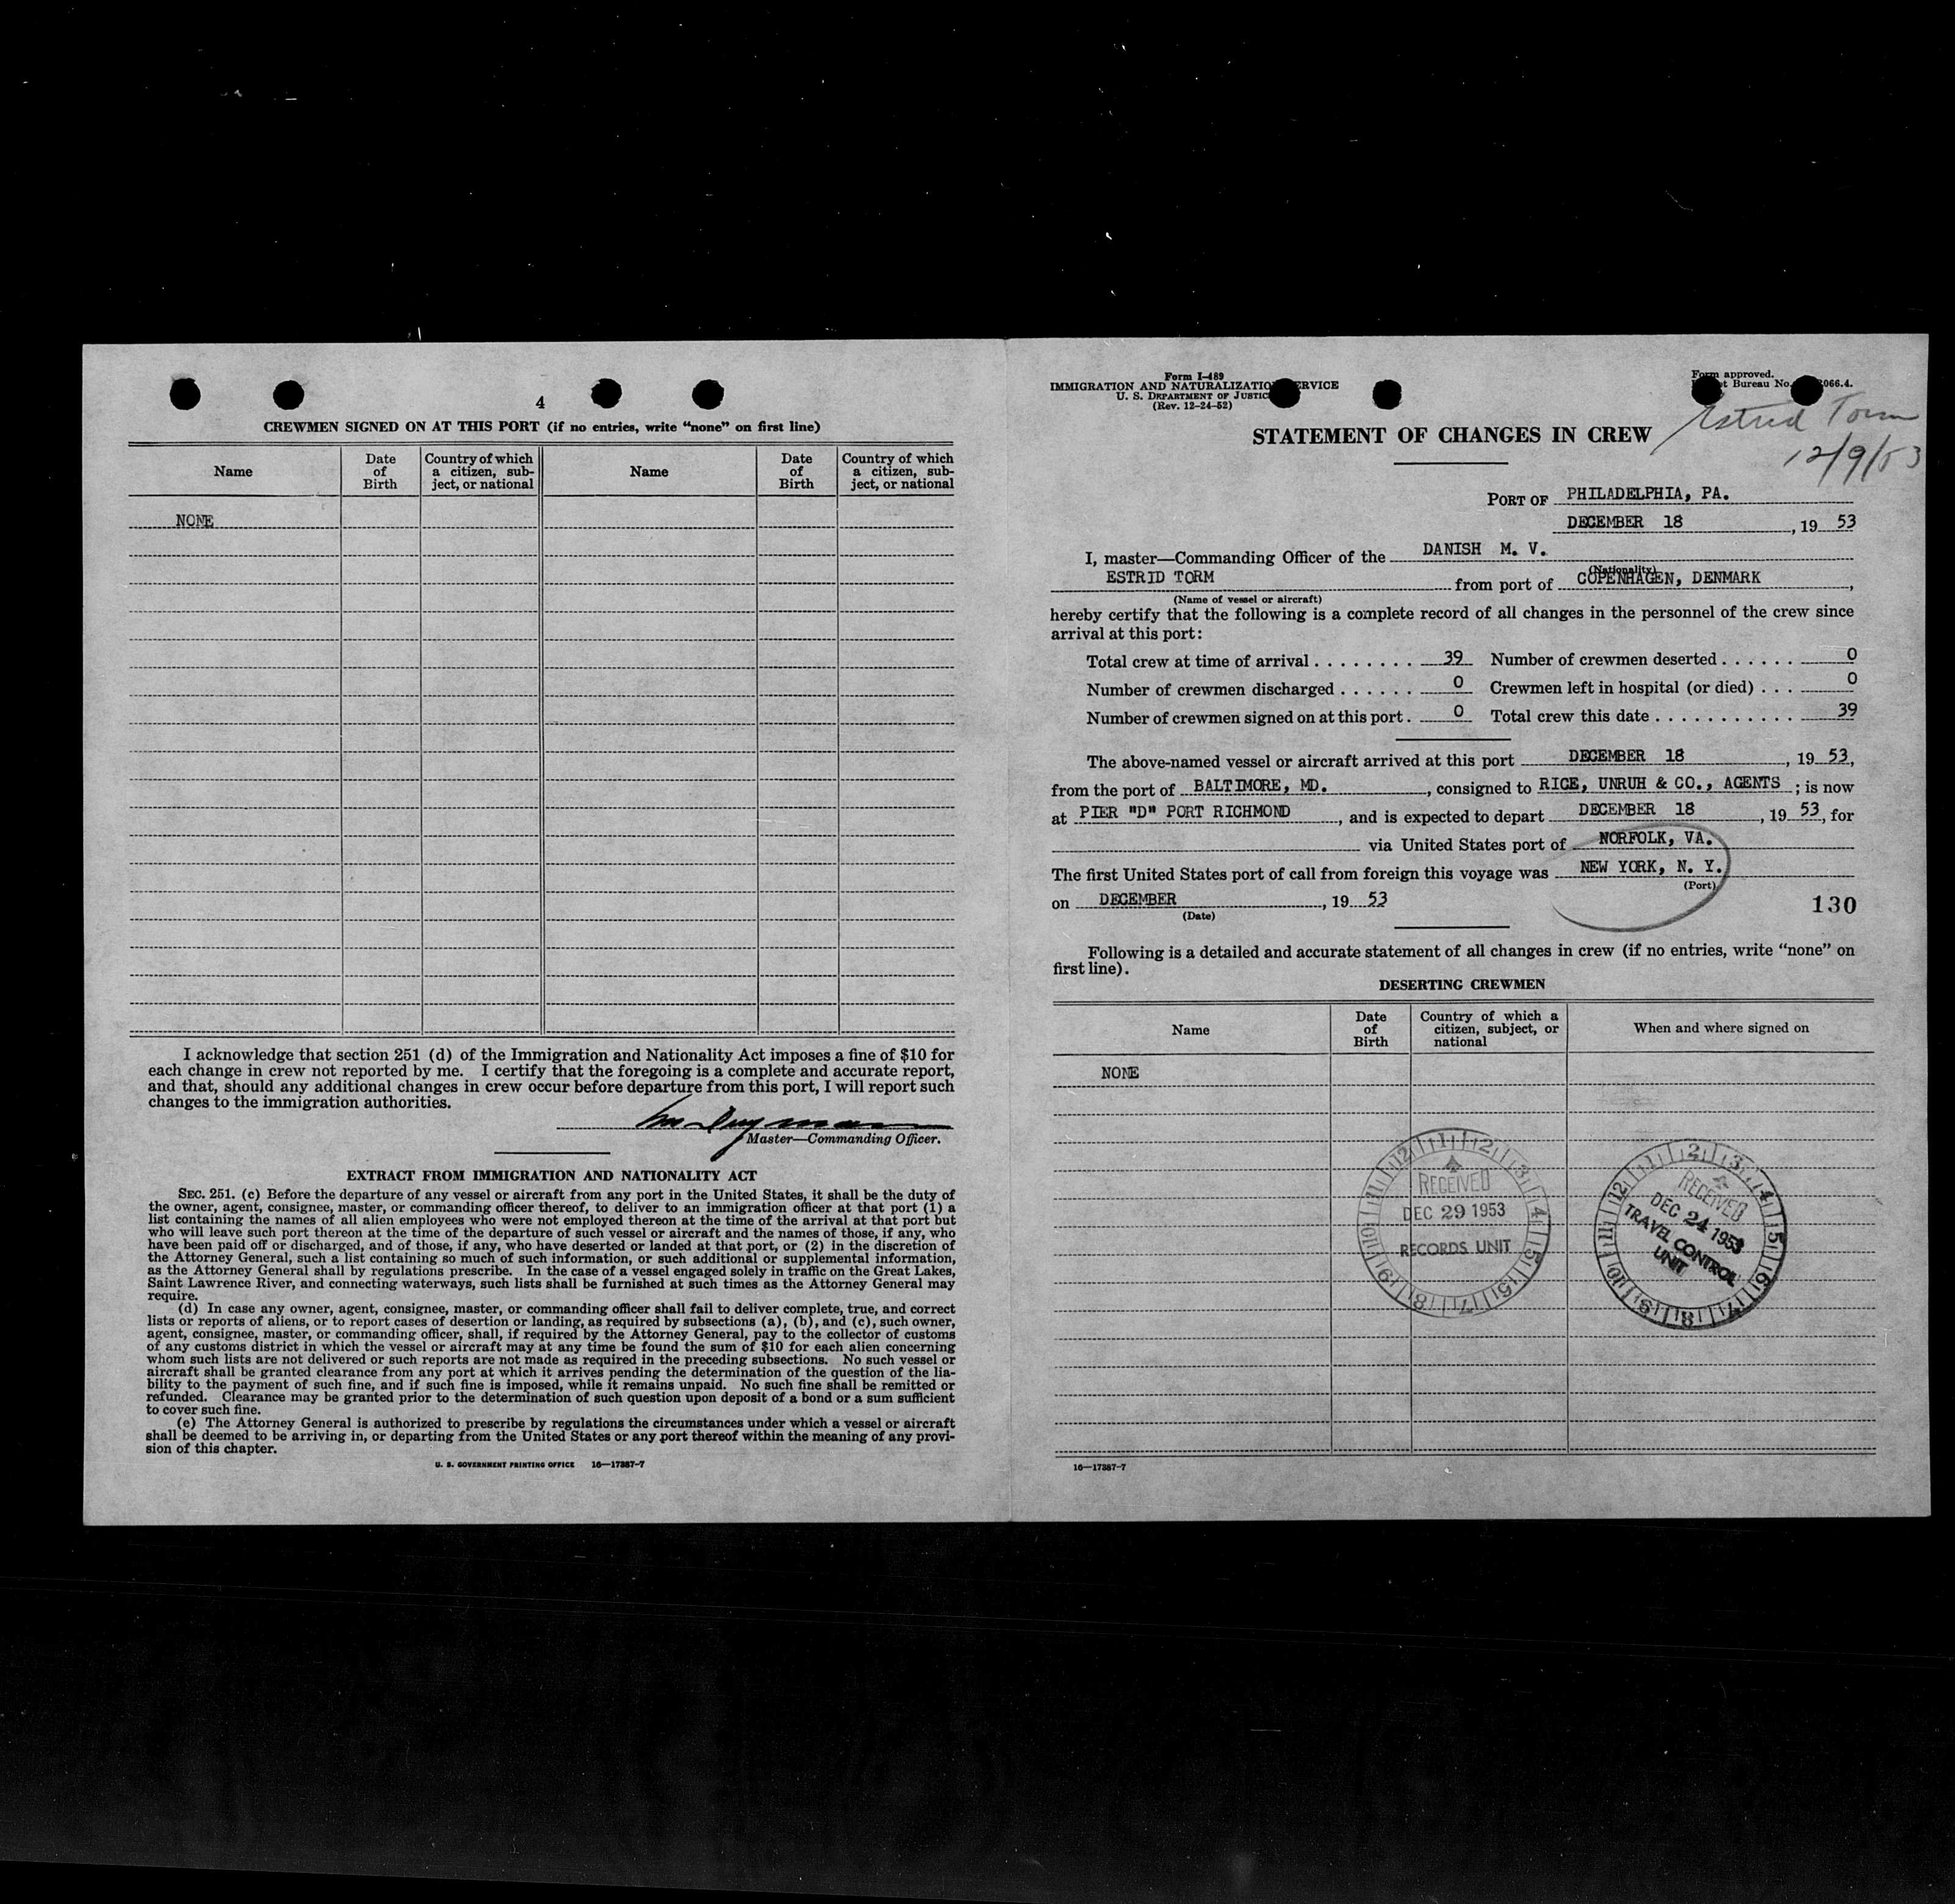 4
CREWMEN SIGNED ON AT THIS PORT (if no entries, write "none" on first line)
Name
Date of Birth
Country of which a citizen, subject, or national
Name
Date of Birth
Country of which a citizen, subject, or national
NONE
I acknowledge that section 251 (d) of the Immigration and Nationality Act imposes a fine of $10 for
each change in crew not reported by me. I certify that the foregoing is a complete and accurate report,
and that, should any additional changes in crew occur before departure from this port, I will report such
changes to the immigration authorities.
Master—Commanding Officer.
EXTRACT FROM IMMIGRATION AND NATIONALITY ACT
SEC. 251. (c) Before the departure of any vessel or aircraft from any port in the United States, it shall be the duty of
the owner, agent, consignee, master, or commanding officer thereof, to deliver to an immigration officer at that port (1) a
list containing the names of all alien employees who were not employed thereon at the time of the arrival at that port but
who will leave such port thereon at the time of the departure of such vessel or aircraft and the names of those, if any, who
have been paid off or discharged, and of those, if any, who have deserted or landed at that port, or (2) in the discretion of
the Attorney General, such a list containing so much of such information, or such additional or supplemental information,
as the Attorney General shall by regulations prescribe. In the case of a vessel engaged solely in traffic on the Great Lakes,
Saint Lawrence River, and connecting waterways, such lists shall be furnished at such times as the Attorney General may
require.
(d) In case any owner, agent, consignee, master, or commanding officer shall fail to deliver complete, true, and correct
lists or reports of aliens, or to report cases of desertion or landing, as required by subsections (a), (b), and (c), such owner,
agent, consignee, master, or commanding officer, shall, if required by the Attorney General, pay to the collector of customs
of any customs district in which the vessel or aircraft may at any time be found the sum of $10 for each alien concerning
whom such lists are not delivered or such reports are not made as required in the preceding subsections. No such vessel or
aircraft shall be granted clearance from any port at which it arrives pending the determination of the question of the lia-
bility to the payment of such fine, and if such fine is imposed, while it remains unpaid. No such fine shall be remitted or
refunded. Clearance may be granted prior to the determination of such question upon deposit of a bond or a sum sufficient
to cover such fine.
(e) The Attorney General is authorized to prescribe by regulations the circumstances under which a vessel or aircraft
shall be deemed to be arriving in, or departing from the United States or any port thereof within the meaning of any provi-
sion of this chapter.
U. S. GOVERNMENT PRINTING OFFICE 16—17387-7
Form I-489
IMMIGRATION AND NATURALIZATION SERVICE
U. S. DEPARTMENT OF JUSTICE
(Rev. 12-24-52)
Form approved.
Bureau No. 066.4.
Estrid Torm
12/9/53
STATEMENT OF CHANGES IN CREW
PORT OF PHILADELPHIA, PA.
DECEMBER 18, 19 53
I, master—Commanding Officer of the DANISH M. V.
(Nationality)
ESTRID TORM from port of COPENHAGEN, DENMARK,
(Name of vessel or aircraft)
hereby certify that the following is a complete record of all changes in the personnel of the crew since
arrival at this port:
Total crew at time of arrival ........ 39 Number of crewmen deserted ...... 0
Number of crewmen discharged ...... 0 Crewmen left in hospital (or died) ... 0
Number of crewmen signed on at this port. 0 Total crew this date ........... 39
The above-named vessel or aircraft arrived at this port DECEMBER 18, 19 53,
from the port of BALTIMORE, MD., consigned to RICE, UNRUH & CO., AGENTS; is now
at PIER "D" PORT RICHMOND, and is expected to depart DECEMBER 18, 19 53, for
via United States port of NORFOLK, VA.
The first United States port of call from foreign this voyage was NEW YORK, N. Y.
(Port)
on DECEMBER, 19 53
(Date)
130
Following is a detailed and accurate statement of all changes in crew (if no entries, write "none" on
first line).
DESERTING CREWMEN
Name
Date of Birth
Country of which a citizen, subject, or national
When and where signed on
NONE
RECEIVED
DEC 29 1953
RECORDS UNIT
RECEIVED
DEC 24 1953
TRAVEL CONTROL
UNIT
16—17387-7